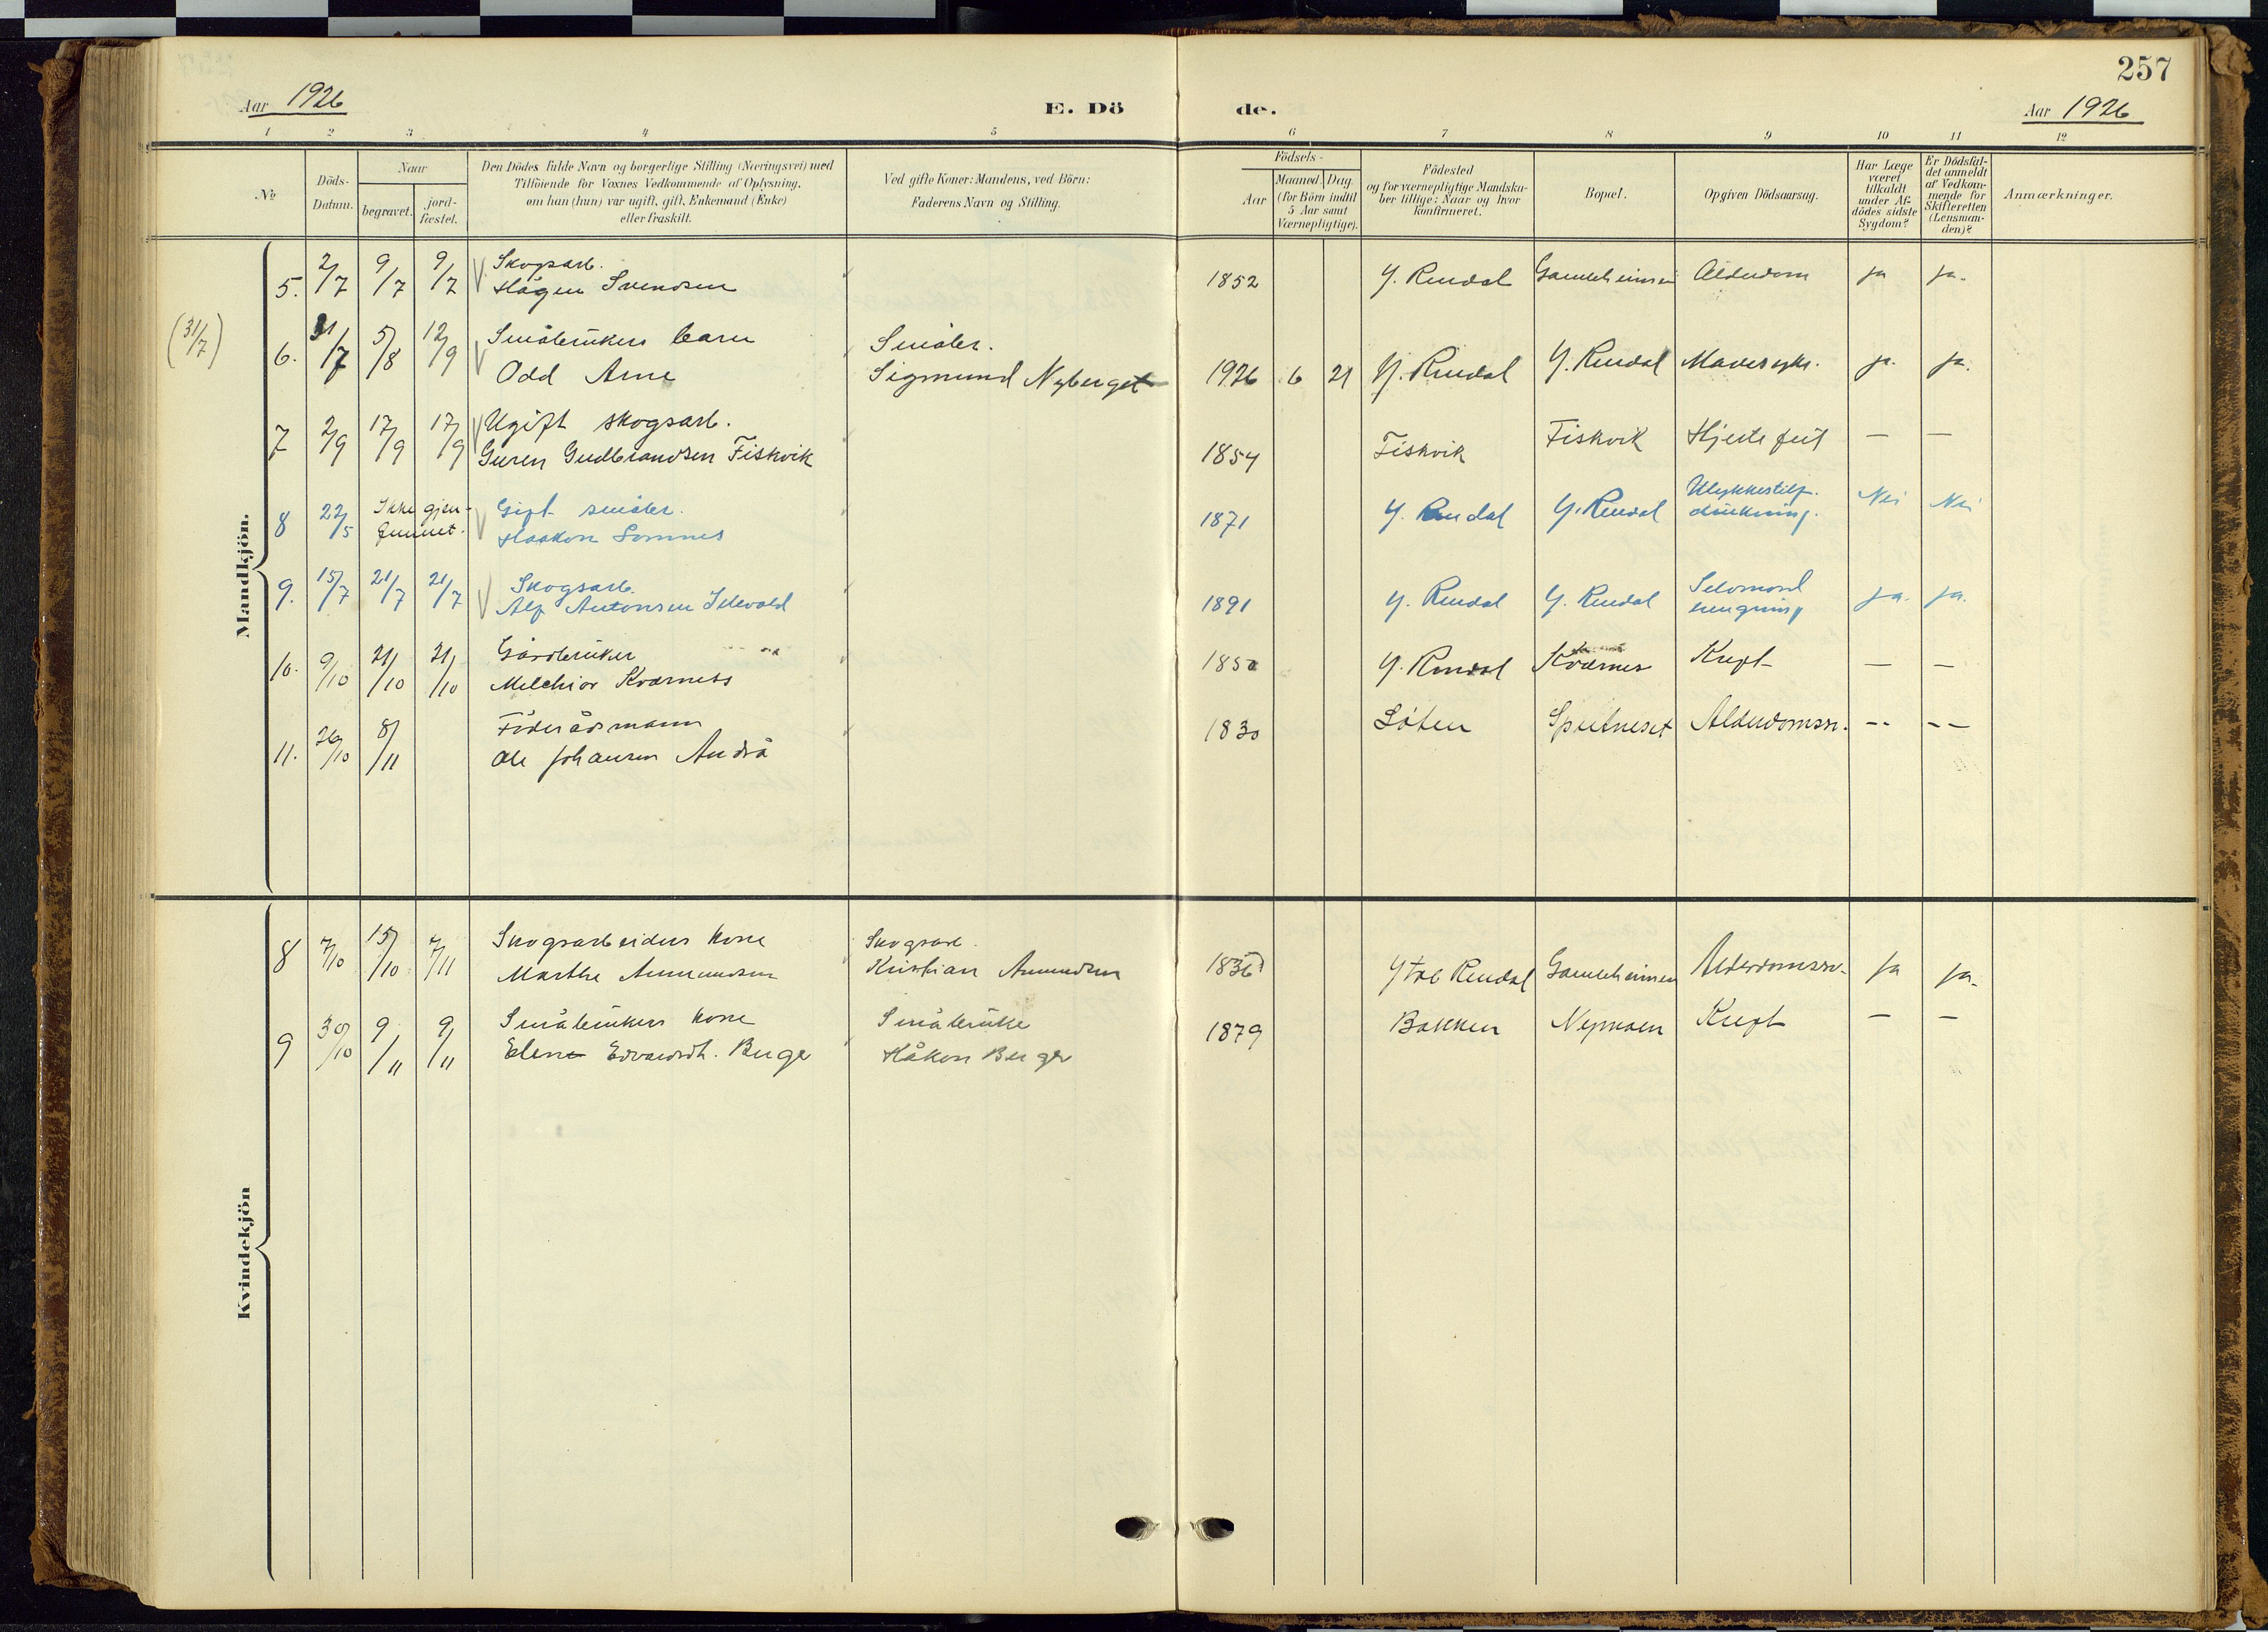 257
Aar 1926
E. Dö
de.
Aar 1926
1 2 3 4 5 6 7 8 9 10 11 12
No
Döds-
Datum.
Naar
begravet.
jord-
fæstet.
Den Dödes fulde Navn og borgerlige Stilling (Næringsvei) med
Tilföiende for Voxnes Vedkommende af Oplysning,
om han (hun) var ugift, gift, Enkemand (Enke)
eller fraskilt.
Ved gifte Koner: Mandens, ved Börn:
Faderens Navn og Stilling.
Födsels-
Aar
Maaned. Dag.
(for Börn indtil
5 Aar samt
Værnepligtige).
Födested
og for værnepligtige Mandsku-
ber tillige: Naar og hvor
konfirmeret.
Bopæl.
Opgiven Dödsaarsag.
Har Læge
været
tilkaldt
under Af-
dödes sidste
Sygdom?
Er Dödsfal-
det anmeldt
af Vedkom-
mende for
Skifteretten
(Lensman-
den)?
Anmærkninger.
Mandkjön.
5. 2/7 9/7 9/7 Skogsarb.
Hågen Svendsen
1852 Y. Rendal Gamleheimen Alderdom ja ja.
(31/7)
6. 31/7 5/8 12/9 Småbrukers barn
Odd Arne
Småbr.
Sigmund Nyberget
1926 6 21 Y. Rendal Y. Rendal Mavesyke. ja. ja.
7 2/9 17/9 17/9 Ugift skogsarb.
Guren Gudbrandsen Fiskvik
1854 Fiskvik Fiskvik Hjertefeil — —
8 22/5 Ikke gjen-
funnet.
Gift småbr.
Haakon Lomnes
1871 Y. Rendal Y. Rendal Ulykkestilf.
drukning. Nei Nei
9. 15/7 21/7 21/7 Skogsarb.
Alf Antonsen
1891 Y. Rendal Y. Rendal Selvmord
hengning ja. ja.
10. 9/10 21/10 21/10 Gårdbruker
Melchior Kværness
Y. Rendal Kværnes Kreft — —
11. 26/10 8/11 Föderådsmann
Ole Johansen Andrå
1830 Löten Alderdomssv. -- --
Kvindekjön
8 7/10 15/10 7/11 Skogsarbeiders kone
Marthe Amundsen
Skogsarb.
Kristian Amundsen
1836 Ytre Rendal Gamleheimen Alderdomssv. ja ja.
9 30/10 9/11 9/11 Småbrukers kone
Elene Edvardsdt. Berge
Småbruke
Håkon Berge
1879 Bakken Nymoen Kreft — —